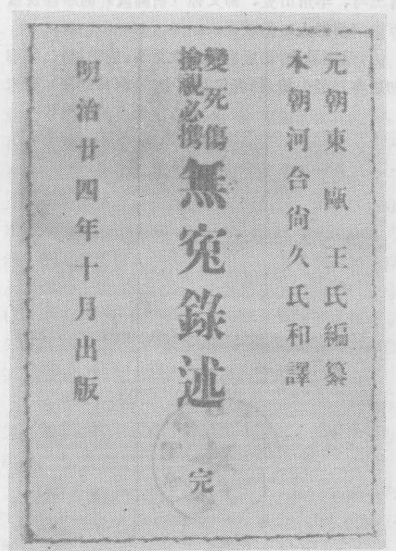 元朝東甌 王氏編纂
本朝河合尙久氏和譯
變死傷
撿視必携
無冤錄述 完
明治廿四年十月出版